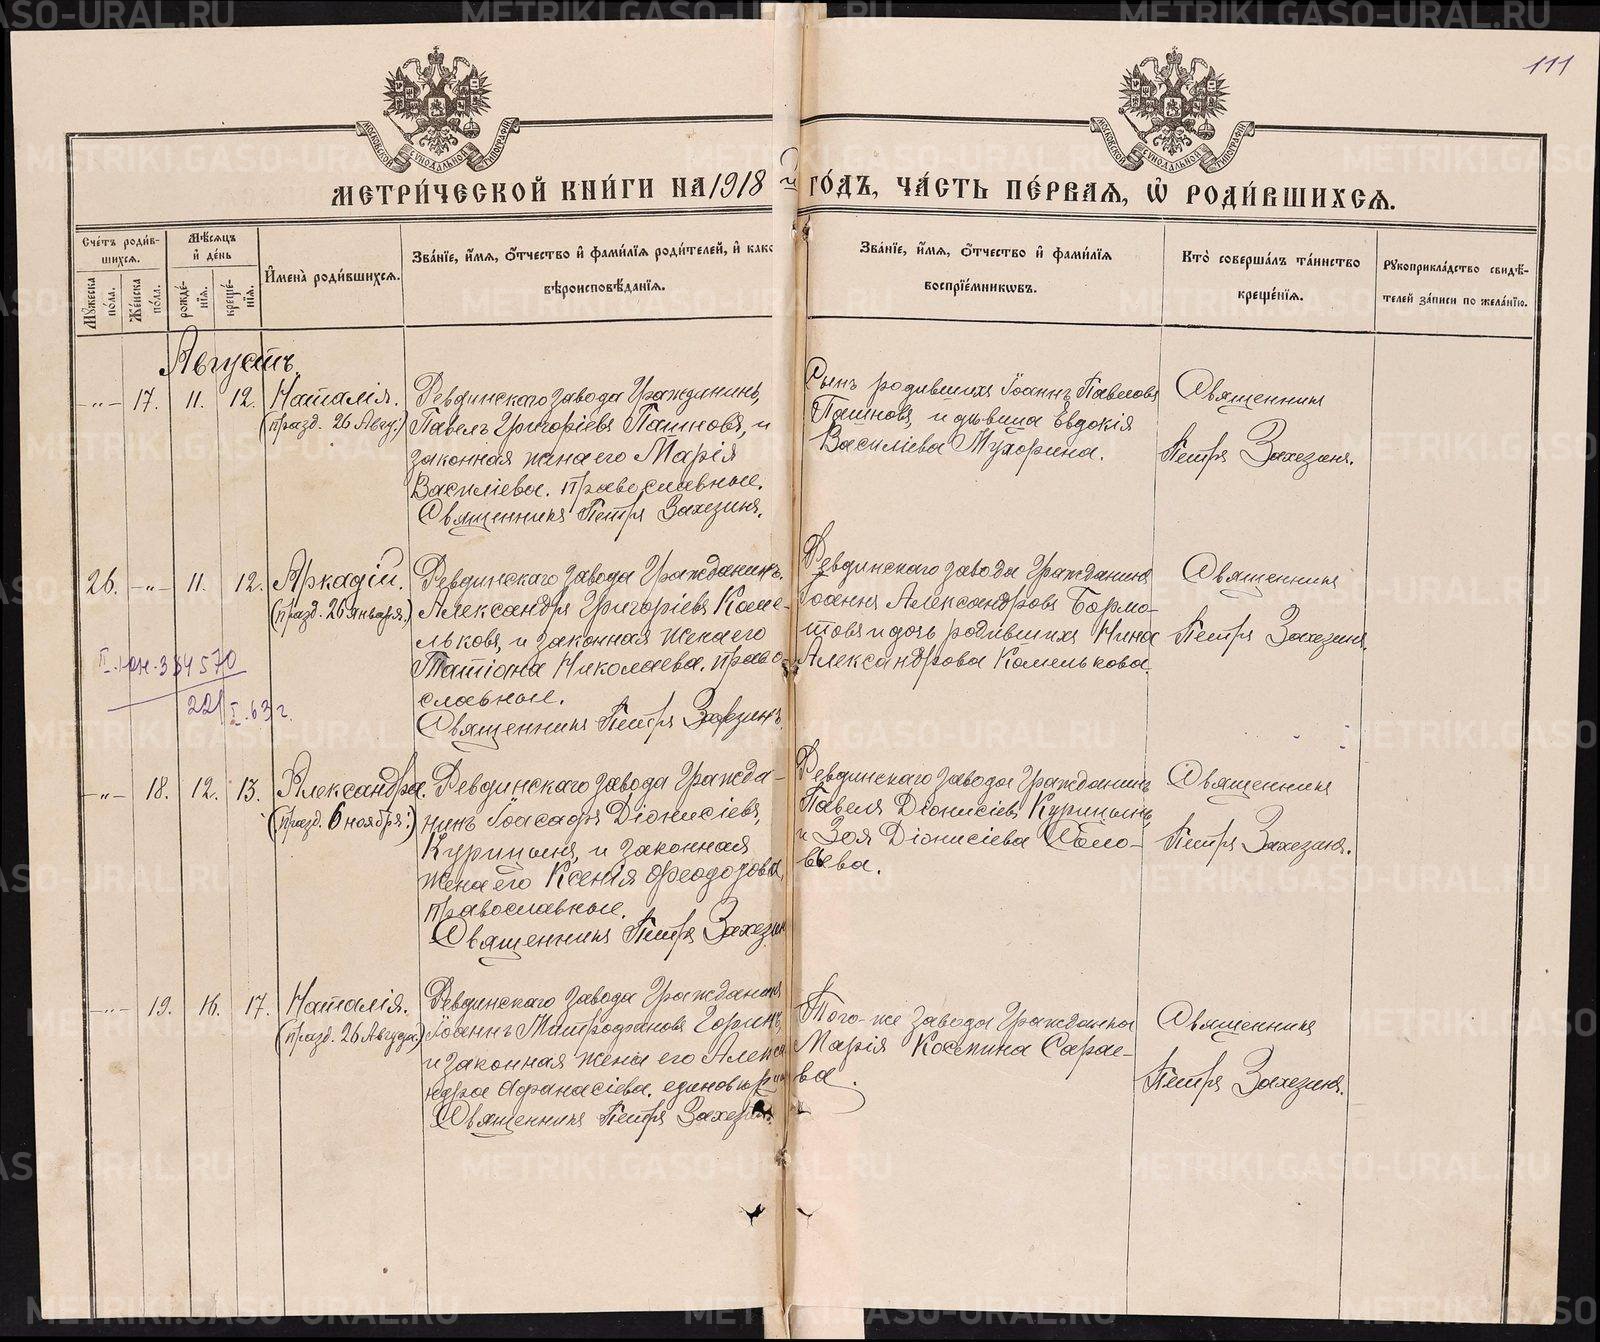 111
МОСКОВСКОЙ СѴНОДАЛЬНОЙ ТИПОГРАФІИ
МОСКОВСКОЙ СѴНОДАЛЬНОЙ ТИПОГРАФІИ
МЕТРИ́ЧЕСКОЙ КНИ́ГИ НА 1918 й ГО́ДЪ, ЧА́СТЬ ПЕ́РВАѦ, Ѡ҆ РОДИ́ВШИХСѦ.
Сче́тъ роди́в-
шихсѧ.
Мѣ́сѧцъ
и҆ де́нь
И҆мена̀ роди́вшихсѧ.
Зва́нїе, и҆́мѧ, ѻ҆́тчество и҆ фами́лїѧ роди́телей, и҆ како
вѣроисповѣ́данїѧ.
Зва́нїе, и҆́мѧ, ѻ҆́тчество и҆ фами́лїѧ
воспрїе́мникѡвъ.
Кто̀ соверша́лъ та́инство
креще́нїѧ.
Рꙋкоприкла́дство свидѣ́-
телей за́писи по жела́нїю.
Мꙋ́жеска
по́ла.
Же́нска
по́ла.
рожде́-
нїѧ.
креще́-
нїѧ.
Августъ.
-"- 17. 11. 12. Наталія.
(празд. 26 Авгу.)
Ревдинскаго завода Гражданинъ,
Павелъ Григоріевъ Пашновъ, и
законная жена его Марія
Василіева. православные.
Священникъ Петръ Захезинъ.
Сынъ родившихъ Іоаннъ Павловъ
Пашновъ, и дѣвица Евдокія
Василіева Мухорина.
Священникъ
Петръ Захезинъ.
26. -"- 11. 12. Аркадій.
(празд. 26 января.)
Ревдинскаго завода Гражданинъ.
Александръ Григоріевъ Каме-
льковъ, и законная жена его
Татіана Николаева. право-
славные.
Священникъ Петръ Захезинъ
Ревдинскаго завода Гражданинъ
Іоаннъ Александровъ Бормо-
товъ и дочь родившихъ Нина
Александрова Камелькова.
Священникъ
Петръ Захезинъ.
II. юн. 334570
221 I. 63 г.
-"- 18. 12. 13. Александра.
(празд. 6 ноября:)
Ревдинскаго завода Гражда-
нинъ Іоасафъ Діонисіевъ,
Курицынъ, и законная
жена его Ксенія Феодорова,
православные.
Священникъ Петръ Захезин
Ревдинскаго завода Гражданинъ
Павелъ Діонисіевъ Курицынъ,
и Зоя Діонисіева Соло-
вьева.
Священникъ
Петръ Захезинъ.
-"- 19. 16. 17. Наталія.
(празд. 26 Августа.)
Ревдинскаго завода Гражданинъ
Іоаннъ Митрофановъ Горинъ,
и законная жена его Алекса
ндра Афанасіева. единовѣрцы
Священникъ Петръ Захезинъ.
Того-же завода Гражданка
Марія Космина Сарае-
ва.
Священникъ
Петръ Захезинъ.
METRIKI.GASO-URAL.RU